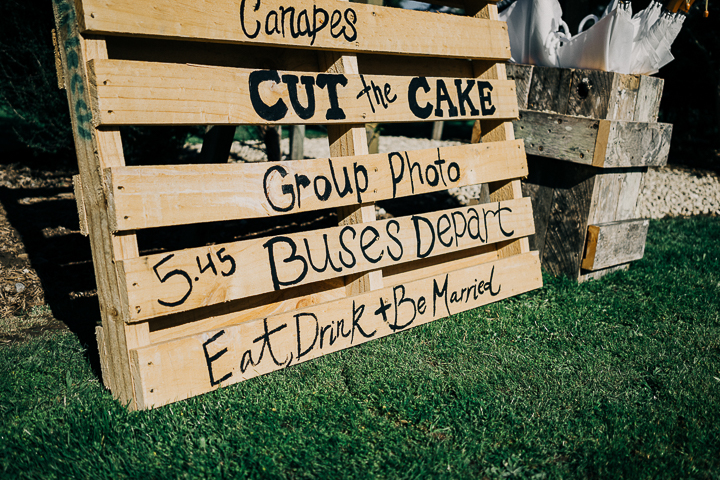 Canapes
CUT the CAKE
Group Photo
5.45 Buses Depart
Eat, Drink + Be Married